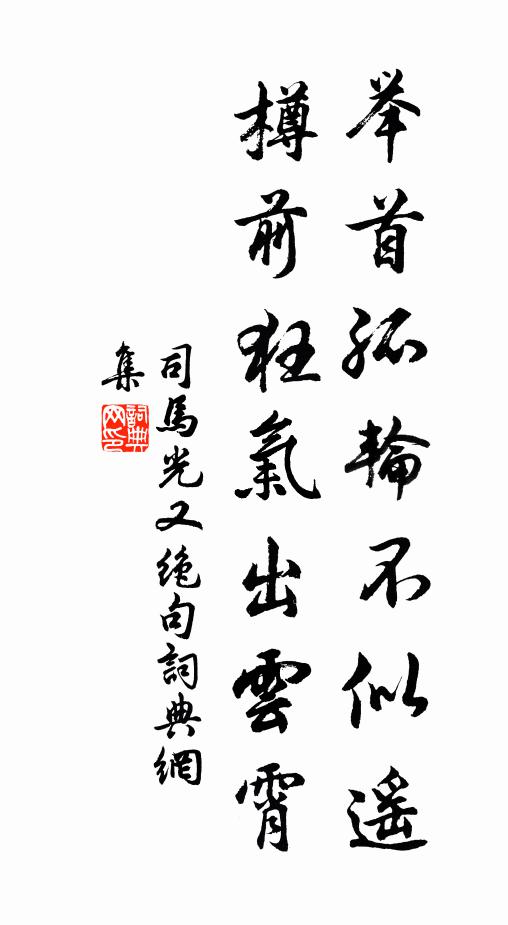 举首孤輪不似遥
樽前狂氣出雲霄
司馬光又絶句詞典網
集
詞典
网印